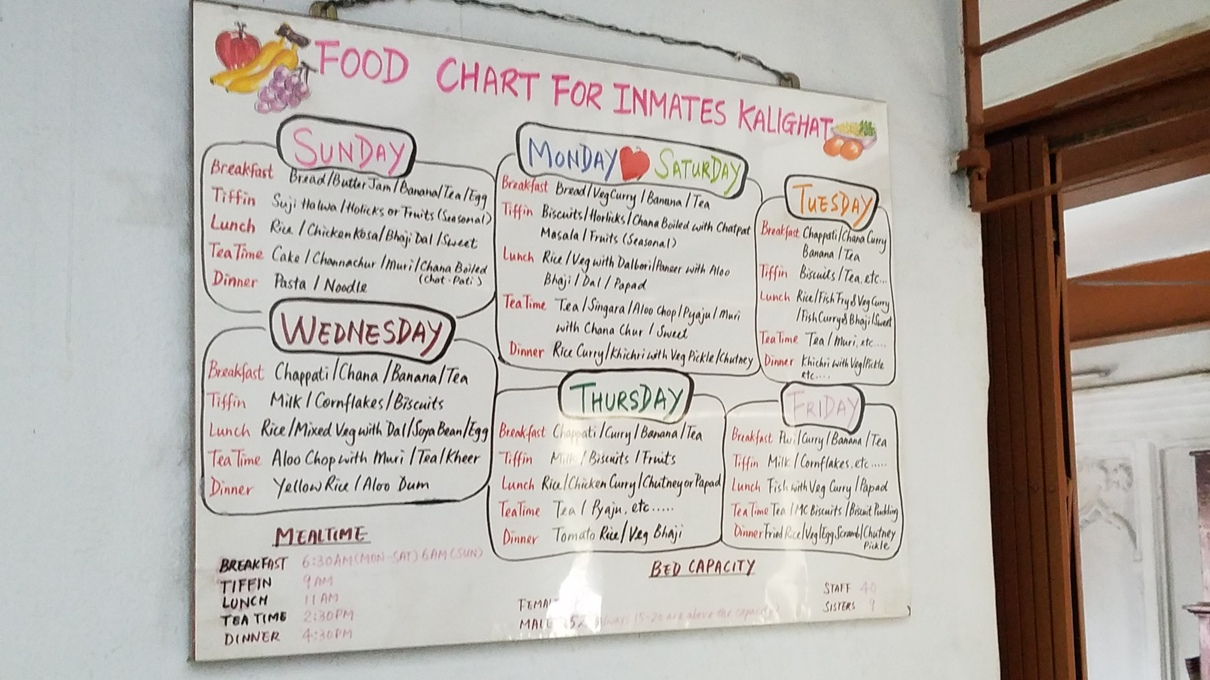 FOOD CHART FOR INMATES KALIGHAT
SUNDAY
Breakfast Bread/Butter Jam/Banana/Tea/Egg
Tiffin Suji Halwa/Holicks or Fruits (Seasonal)
Lunch Rice/Chicken Kosa/Bhaji Dal/Sweet
Tea Time Cake/Channachur/Muri/Chana Boiled
(Chat-Pati)
Dinner Pasta/Noodle
MONDAY SATURDAY
Breakfast Bread/Veg Curry/Banana/Tea
Tiffin Biscuits/Horlicks/Chana Boiled with Chatpat
Masala/Fruits (Seasonal)
Lunch Rice/Veg with Dalbori/Paneer with Aloo
Bhaji/Dal/Papad
Tea Time Tea/Singara/Aloo Chop/Pyaju/Muri
with Chana Chur/Sweet
Dinner Rice Curry/Khichri with Veg Pickle/Chutney
TUESDAY
Breakfast Chappati/Chana Curry
Banana/Tea
Tiffin Biscuits/Tea, etc...
Lunch Rice/Fish Fry & Veg Curry
/Fish Curry & Bhaji/Sweet
Tea Time Tea/Muri, etc....
Dinner Khichri with Veg/Pickle
etc....
WEDNESDAY
Breakfast Chappati/Chana/Banana/Tea
Tiffin Milk/Cornflakes/Biscuits
Lunch Rice/Mixed Veg with Dal/Soya Bean/Egg
Tea Time Aloo Chop with Muri/Tea/Kheer
Dinner Yellow Rice/Aloo Dum
THURSDAY
Breakfast Chappati/Curry/Banana/Tea
Tiffin Milk/Biscuits/Fruits
Lunch Rice/Chicken Curry/Chutney or Papad
Tea Time Tea/Pyaju, etc......
Dinner Tomato Rice/Veg Bhaji
FRIDAY
Breakfast Puri/Curry/Banana/Tea
Tiffin Milk/Cornflakes, etc.....
Lunch Fish with Veg Curry/Papad
Tea Time Tea/MC Biscuits/Biscuit Pudding
Dinner Fried Rice/Veg/Egg Scramb/Chutney
Pickle
MEALTIME
BREAKFAST 6:30AM (MON-SAT) 6AM (SUN)
TIFFIN 9 AM
LUNCH 11 AM
TEA TIME 2:30PM
DINNER 4:30PM
BED CAPACITY
MALE 52 15-20 are above the
STAFF 40
SISTERS 9